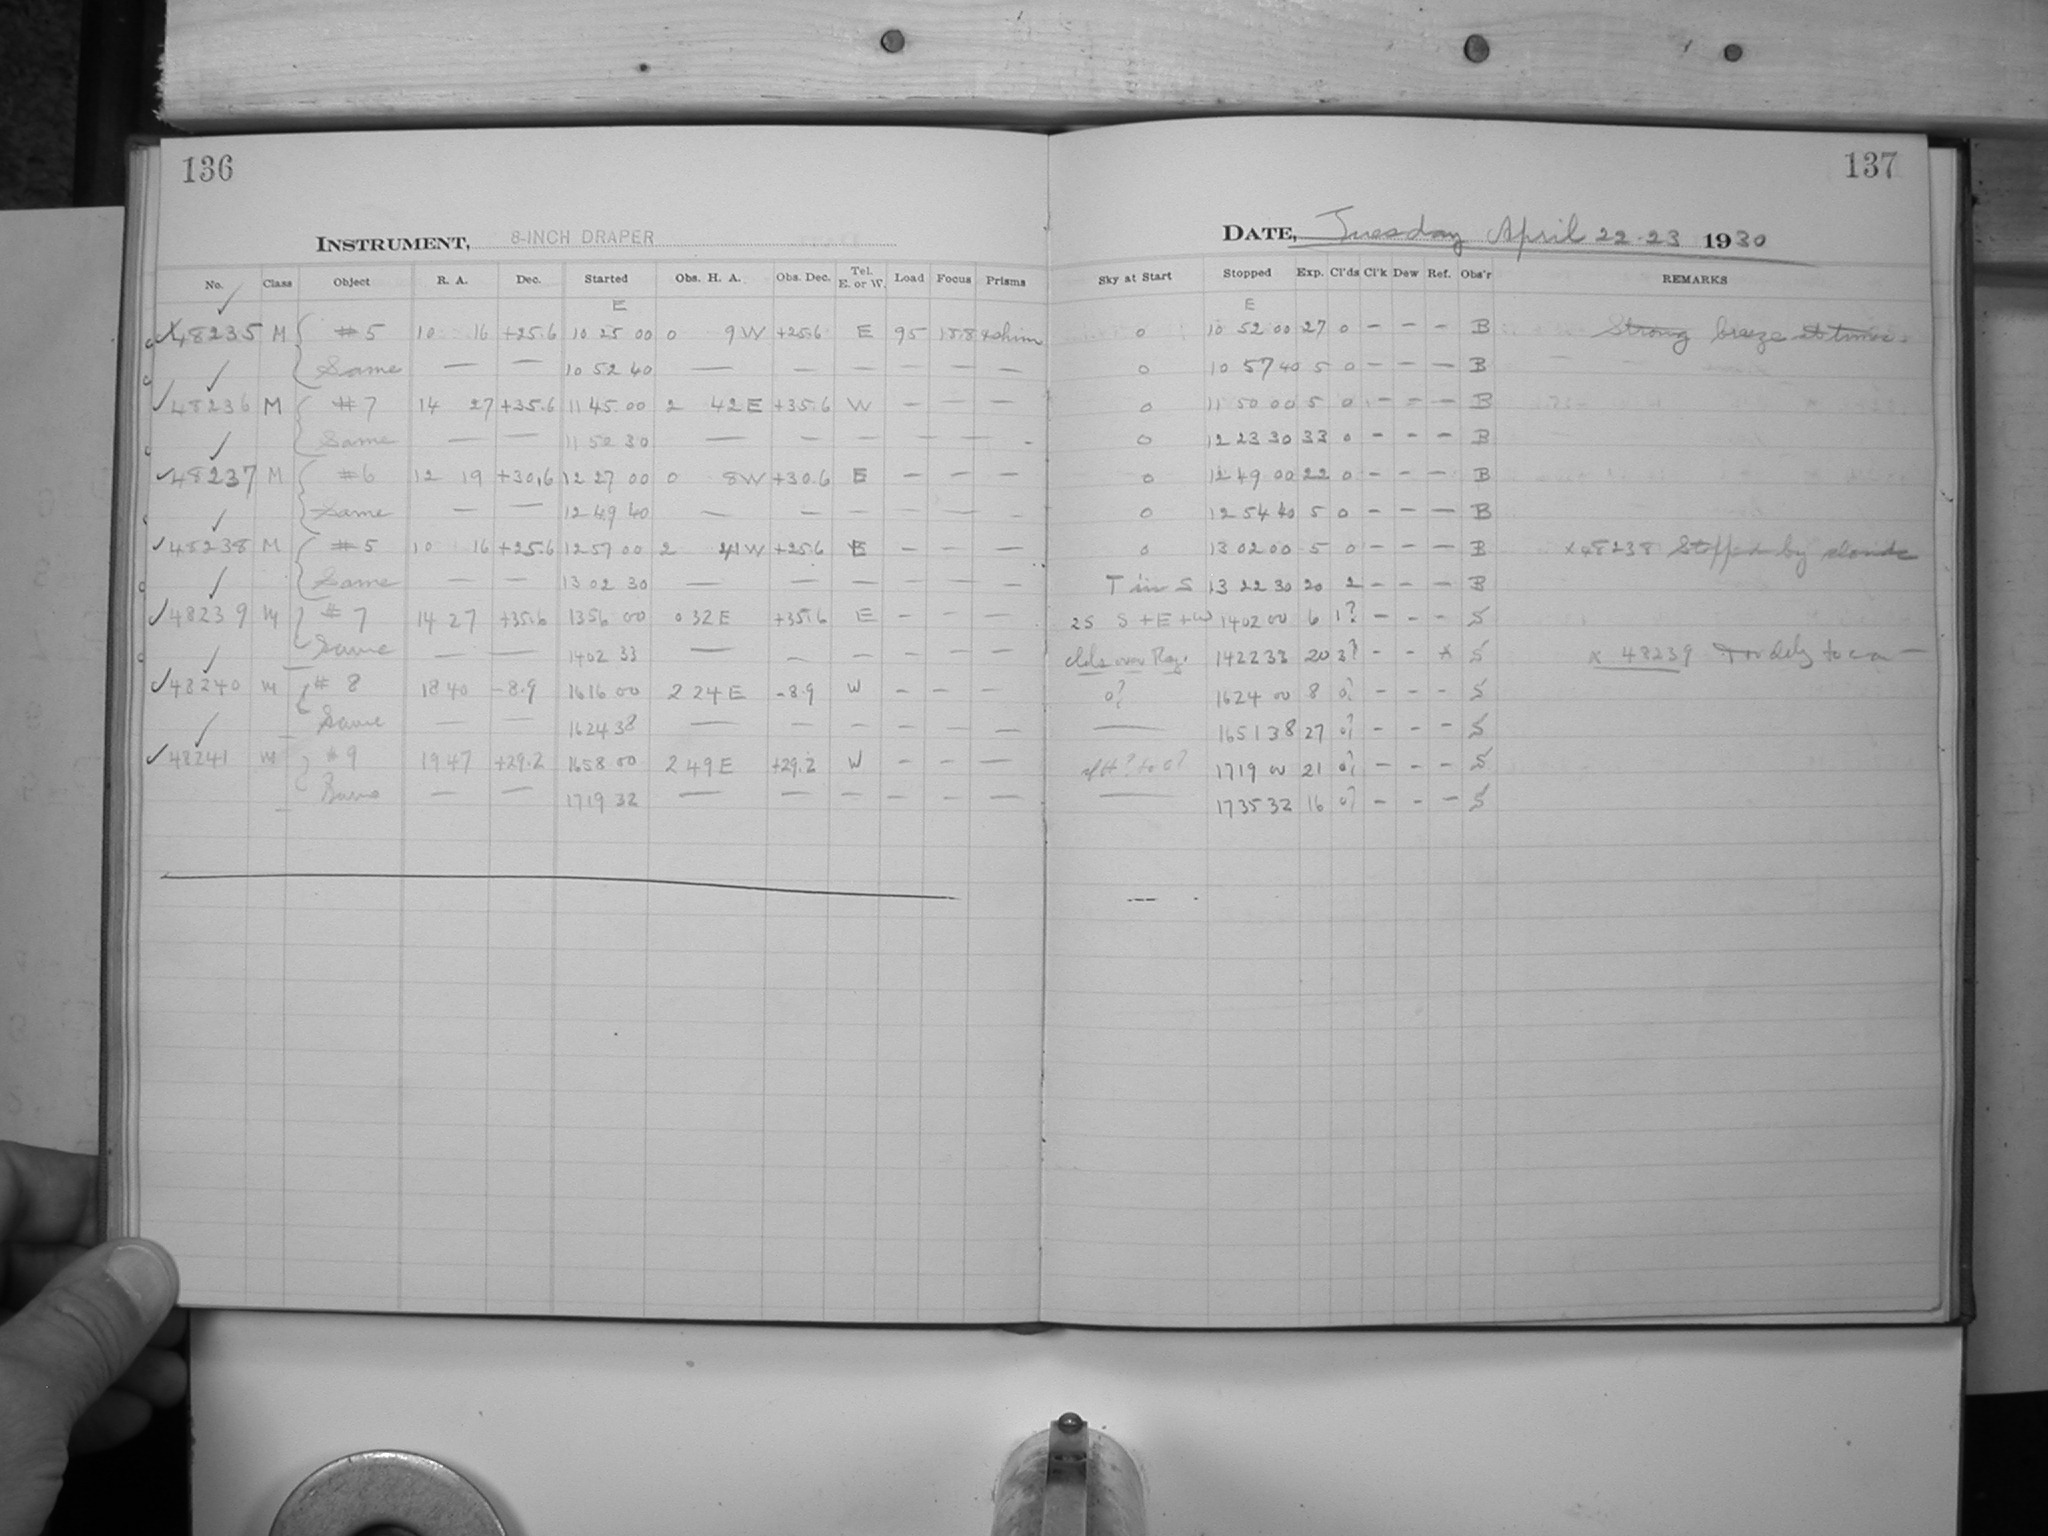 136
INSTRUMENT, 8-INCH DRAPER
No. Class Object R. A. Dec. Started Obs. H. A. Obs. Dec. Tel. E. or W. Load Focus Prisms
E
48235 M #5 10 16 +25.6 10 25 00 0 9 W +25.6 E 95 15.8
Same — — 10 52 40 — — — — — —
48236 M #7 14 27 +35.6 11 45 00 2 42 E +35.6 W — — —
Same — — 11 50 30 — — — — — -
48237 M #6 12 19 +30.6 12 27 00 0 8 W +30.6 E — — —
Same — — 12 49 40 — — — — — -
48238 M #5 10 16 +25.6 12 57 00 2 41 W +25.6 E — — —
Same — — 13 02 30 — — — — — —
48239 M #7 14 27 +35.6 13 56 00 0 32 E +35.6 E — — —
Same — — 14 02 33 — — — — — —
48240 M #8 18 40 -8.9 16 16 00 2 24 E -8.9 W — — —
Same — — 16 24 38 — — — — — —
48241 M #9 19 47 +29.2 16 58 00 2 49 E +29.2 W — — —
— — 17 19 32 — — — — — —
137
DATE, Tuesday April 22-23 1930
Sky at Start Stopped Exp. Cl'ds Cl'k Dew Ref. Obs'r REMARKS
E
0 10 52 00 27 0 — — — B Strong breeze at times.
0 10 57 40 5 0 — — — B
0 11 50 00 5 0 — — — B
0 12 23 30 33 0 — — — B
0 12 49 00 22 0 — — — B
0 12 54 40 5 0 — — — B
0 13 02 00 5 0 — — — B x 48238 Stopped by clouds
T in S 13 22 30 20 2 — — — B
25 S + E + W 14 02 00 6 1? — — — S
clds over Reg. 14 22 33 20 3? — — x S x 48239
0? 16 24 00 8 0? — — — S
— 16 51 38 27 0? — — — S
17 19 00 21 0? — — — S
— 17 35 32 16 0? — — — S